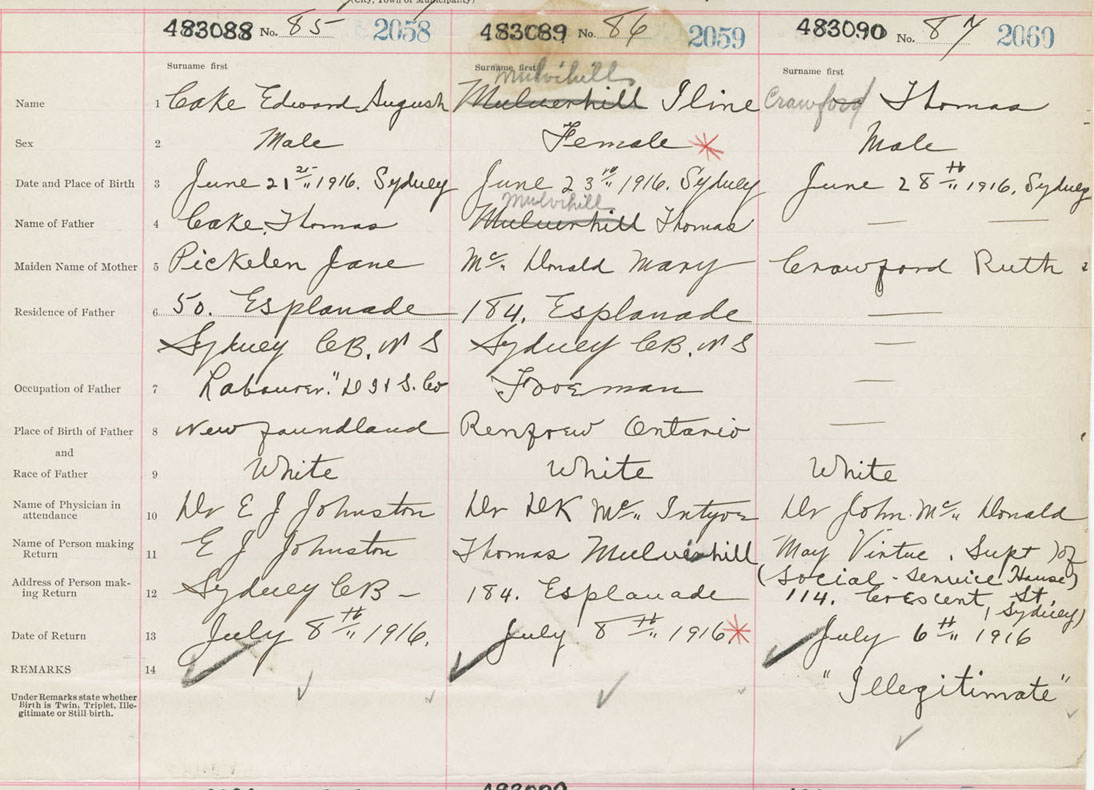 (City, Town or Municipality)
483088 No. 85 2058 483089 No. 86 2059 483090 No. 87 2060
Surname first Surname first Surname first
Mulvihill
Name 1 Cake Edward August Muluerhill Iline Crawford Thomas
Sex 2 Male Female * Male
Date and Place of Birth 3 June 21st 1916. Sydney June 23rd 1916. Sydney June 28th 1916. Sydney
Mulvihill
Name of Father 4 Cake. Thomas Muluerhill Thomas — —
Maiden Name of Mother 5 Pickelen Jane Mc. Donald Mary Crawford Ruth
Residence of Father 6 50. Esplanade 184. Esplanade —
Sydney CB. N S Sydney CB. N S —
Occupation of Father 7 Labourer. "D I & S. Co Foreman —
Place of Birth of Father 8 Newfoundland Renfrew Ontario —
and
Race of Father 9 White White White
Name of Physician in
attendance 10 Dr E J Johnston Dr DK Mc Intyre Dr John. Mc Donald
Name of Person making
Return 11 E J Johnston Thomas Mulvihill May Virtue. Supt of
(Social - Service House)
Address of Person mak-
ing Return 12 Sydney CB – 184. Esplanade 114. Crescent St, Sydney)
Date of Return 13 July 8th 1916. July 8th 1916 * July 6th 1916
REMARKS 14
Under Remarks state whether
Birth is Twin, Triplet, Ille-
gitimate or Still birth.
"Illegitimate"